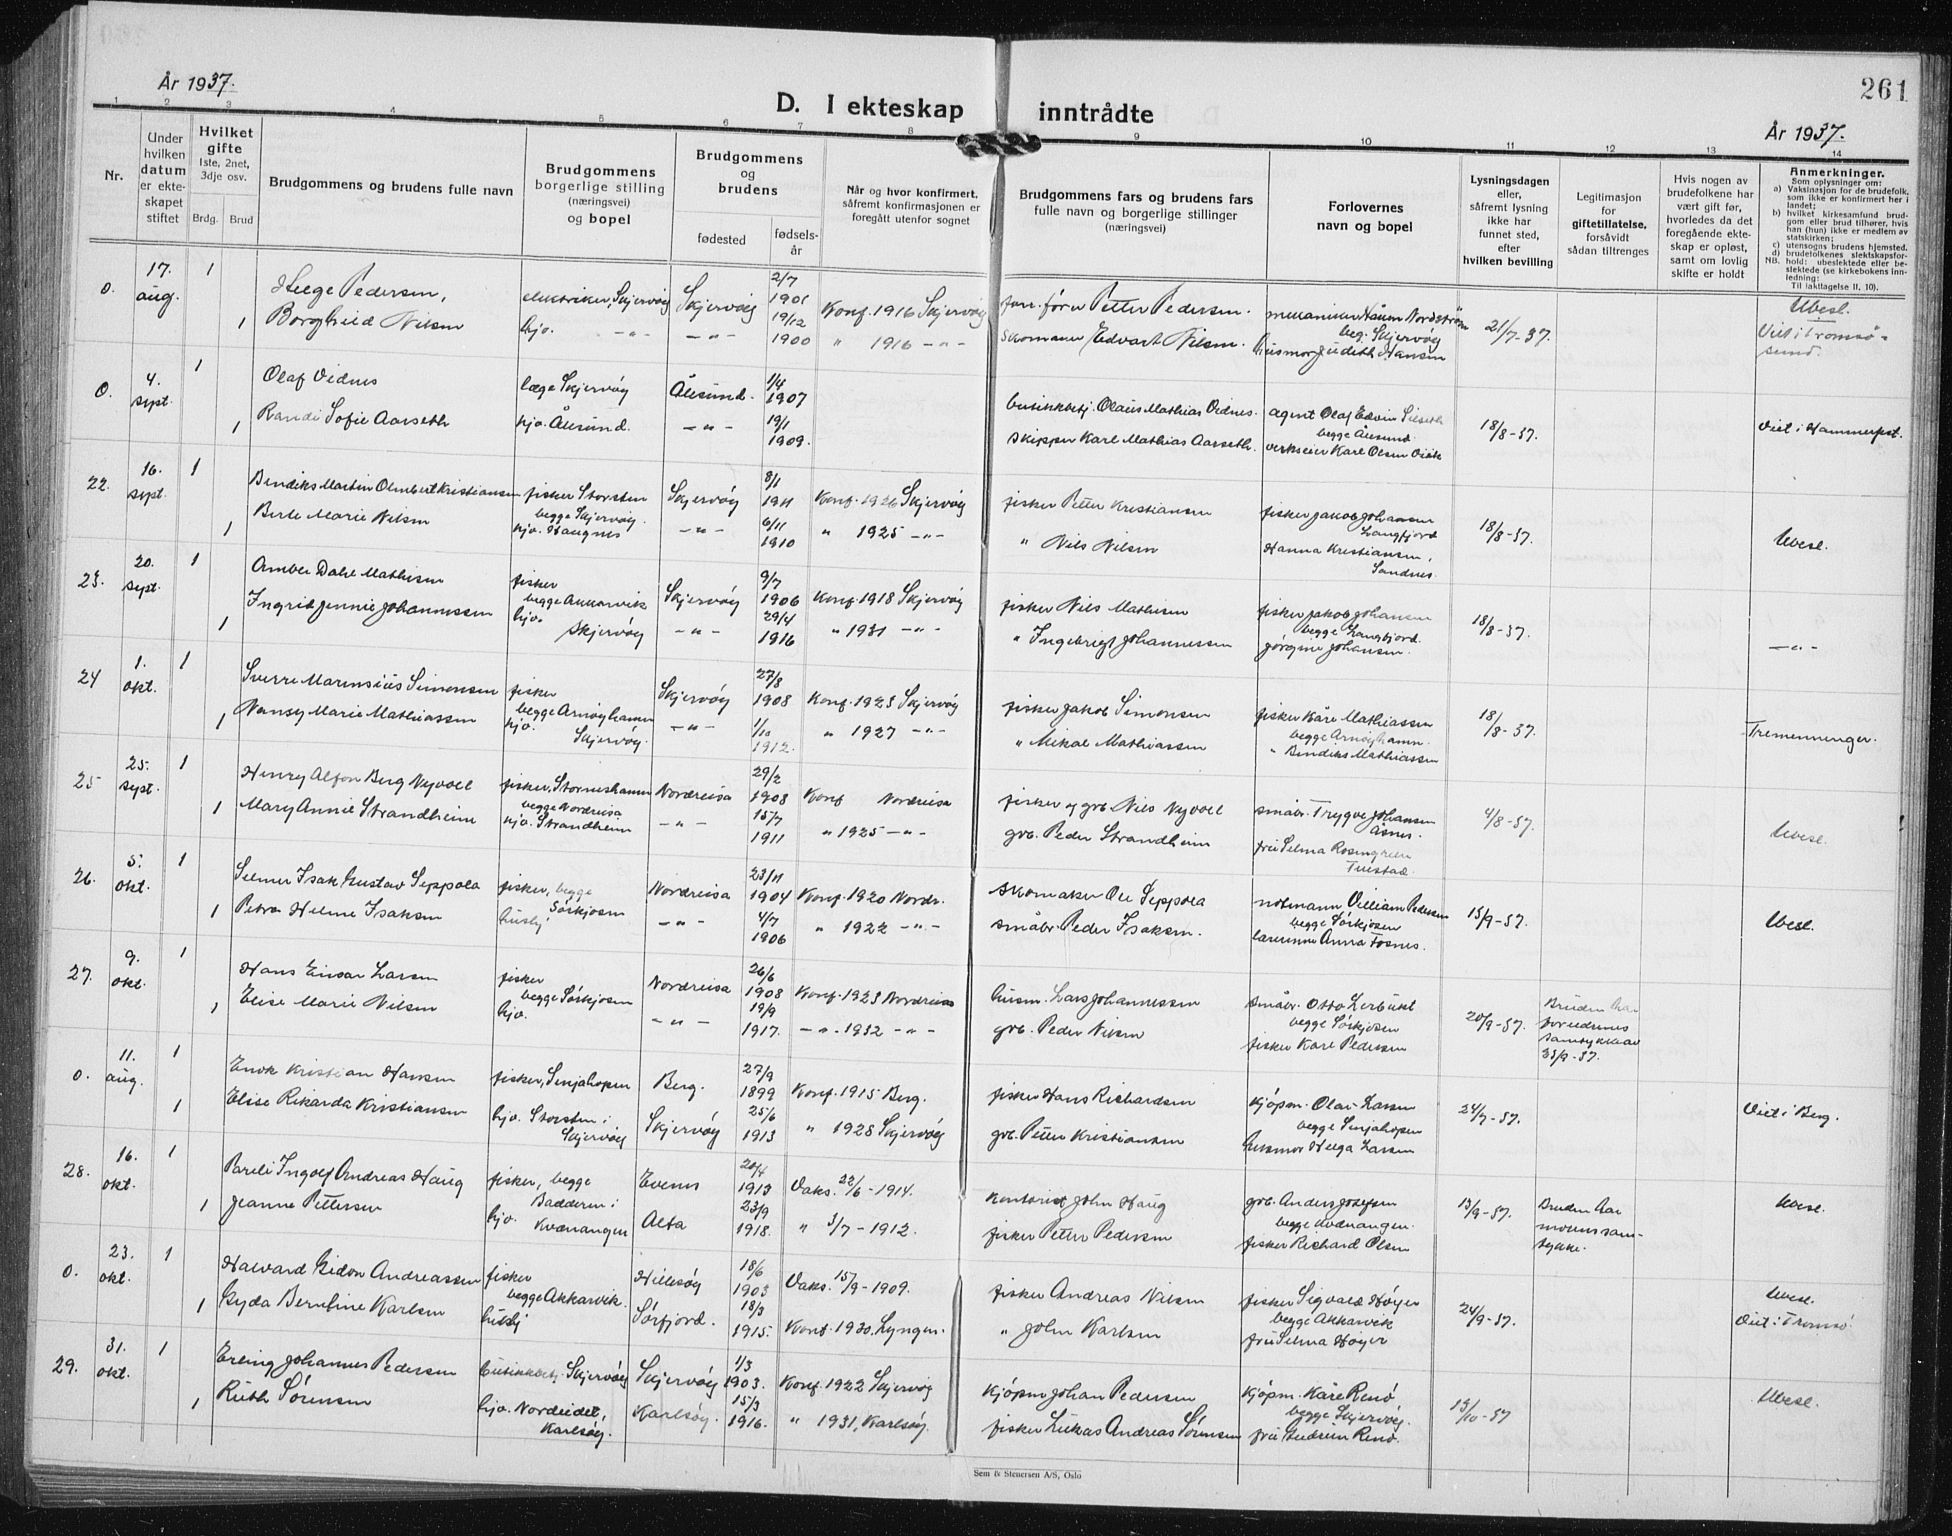 261
År 1937.
D. I ekteskap inntrådte
År 1937.
1 2 3 4 5 6 7 8 9 10 11 12 13 14
Nr.
Under hvilken datum er ekteskapet stiftet
Hvilket gifte
1ste, 2net, 3dje osv.
Brdg. Brud
Brudgommens og brudens fulle navn
Brudgommens borgerlige stilling (næringsvei) og bopel
Brudgommens og brudens
fødested
fødselsår
Når og hvor konfirmert, såfremt konfirmasjonen er foregått utenfor sognet
Brudgommens fars og brudens fars fulle navn og borgerlige stillinger (næringsvei)
Forlovernes navn og bopel
Lysningsdagen eller, såfremt lysning ikke har funnet sted, efter hvilken bevilling
Legitimasjon for giftetillatelse, forsåvidt sådan tiltrenges
Hvis nogen av brudefolkene har vært gift før, hvorledes da det foregående ekteskap er opløst, samt om lovlig skifte er holdt
Anmerkninger.
Som oplysninger om:
a) Vaksinasjon for de brudefolk, som ikke er konfirmert her i landet;
b) hvilket kirkesamfund brudgom eller brud tilhører, hvis han (hun) ikke er medlem av statskirken;
c) utensogns brudens hjemsted.
d) brudefolkenes slektskapsforhold: ubeslektede eller beslektede (se kirkebokens innledning:
NB. Til iakttagelse II. 10).
0. 17. aug. 1 Helge Pedersen, elektriker, Skjervöy Skjervöy 2/7 1901 Konf. 1916 Skjervöy Petter Pedersen. mekaniker Haam Nordström 21/7-37. Ubesl.
1 Borghild Nilsen hjv. -"- -"- 19/12 1900 " 1916 -"- skomaker Edvart Nilsen. beg. Skjervöy husmor Judith Hansen Viet i Tromsösund.
0. 4. sept. 1 Olaf Vidnes læge Skjervöy Ålesund. 1/4 1907 butikkbetj. Olaus Mathias Vidnes. agent Olaf Edvin 18/8-37. Viet i Hammerfest.
1 Randi Sofie Aarseth hjv. Ålesund. -"- 19/1 1909. skipper Karl Mathias Aarseth. begge Ålesund. verkseier Karl Olsen
22. 16. sept. 1 Bendiks Martin Olmbert Kristiansen fisker Storsten Skjervöy 8/1 1911 Konf. 1926 Skjervöy fisker Peter Kristiansen fisker Jakob Johansen Langfjord 18/8-37. Ubesl.
1 Berle Marie Nilsen begge Skjervöy. hjv. Haugnes -"- 6/11 1910 " 1925 -"- " Nils Nilsen Hanna Kristiansen, Sandnes.
23. 20. sept. 1 Amber Dahl Mathisen fisker begge Akkarvik Skjervöy 9/7 1906 Konf. 1918 Skjervöy fisker Nils Mathisen fisker Jakob Johansen 18/8-37. -"-
1 Ingrid Jennie Johannessen hjv. Skjervöy -"- 29/4 1916 " 1931 -"- " Ingebrigt Johannessen begge Langfjord. Jörgine Johansen.
24 1. okt. 1 Sverre Marensius Simonsen fisker begge Arnöyhamn Skjervöy 27/8 1908 Konf. 1923 Skjervöy fisker Jakob Simonsen fisker Kåre Mathiassen 18/8-37. Tremenninger.
1 Nansy Marie Mathiassen hjv. Skjervöy. -"- 1/10 1912. " 1927 -"- " Mikal Mathiassen begge Arnöyhamn. " Bendiks Mathiassen
25 25. sept. 1 Henry Alfon Berg Nyvoll fisker, Storneshamn Nordreisa 29/2 1908 Konf Nordreisa fisker og gbr. Nils Nyvoll småbr. Trygve Johansen Åsnes. 4/8-37. Ubesl.
1 Mary Annie Strandheim begge Nordreisa hjv. Strandheim -"- 15/7 1911 " 1925 -"- gbr. Peder Strandheim frü Selma Rosengren
26. 5. okt. 1 Selmer Isak Gustav Seppola fisker, begge Sörkjosen Nordreisa 23/11 1904 Konf. 1920 Nordr. skomaker Ole Seppola notmann Villiam Pedersen 15/9-37. Ubesl.
1 Petra Helene Isaksen hushj -"- 4/7 1906 " 1922 -"- småbr. Peder Isaksen. begge Sörkjosen lærerinne Anna Fosnes.
27. 9. okt. 1 Hans Einar Larsen fisker begge Sörkjosen Nordreisa 26/6 1908 Konf. 1923 Nordreisa husm. Lars Johannessen småbr. Otto Lerbukt 20/9-37. Bruden har foreldrenes samtykke av 25/9-37.
1 Elise Marie Nilsen hjv. -"- 19/9 1917. -"- 1932 -"- gbr. Peder Nilsen begge Sörkjosen fisker Kare Pedersen
0. 11. aug. 1 Enok Kristian Hansen fisker, Senjahopen Berg. 27/9 1899 Konf. 1915 Berg. fisker Hans Richardsen kjöpm. Olav Larsen 24/7-37. Viet i Berg.
1 Elise Rikarda Kristiansen hjv. Storsten i Skjervöy Skjervöy 25/6 1913 " 1928 Skjervöy gbr. Peter Kristiansen begge Senjahopen husmor Helga Larsen
28. 16. okt. 1 Pareli Ingolf Andreas Haug fisker, begge Badderen i Kvænangen Evenes 20/4 1913 Vaks. 22/6-1914. kontorist John Haug gbr. Anders Josefsen 13/9-37. Bruden har morens samtykke. Ubesl.
1 Jeanne Pettersen hjv. Alta 23/9 1918. " 3/7-1912. fisker Petter Pedersen begge Kvænangen. fisker Richard Olsen
0. 23. okt. 1 Halvard Gidon Andreassen fisker begge Akkarvik. Hillesöy 18/6 1903 Vaks. 15/9-1909. fisker Andreas Nilsen fisker Sigvald Höyer 24/9-37. Ubesl.
1 Gyda Berntine Karlsen hushj Sörfjord. 18/3 1915. Konf. 1930, Lyngen. " John Karlsen begge Akkarvik frü Selma Höyer Viet i Tromsö
29. 31. okt. 1 Erling Johannes Pedersen butikkbetj. Skjervöy Skjervöy 1/3 1903. Konf. 1922 Skjervöy kjöpm Johan Pedersen kjöpm. Kåre Renö 15/10-37 Ubesl.
1 Ruth Sörensen hjv. Nordeidet, Karlsöy. Karlsöy. 15/3 1916. " 1931, Karlsöy. fisker Lukas Andreas Sörensen begge Skjervöy. frü Gudrun Renö.
Sem & Stenersen A/S, Oslo